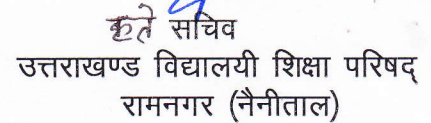 कृते सचिव
उत्तराखण्ड विद्यालयी शिक्षा परिषद्
रामनगर (नैनीताल)